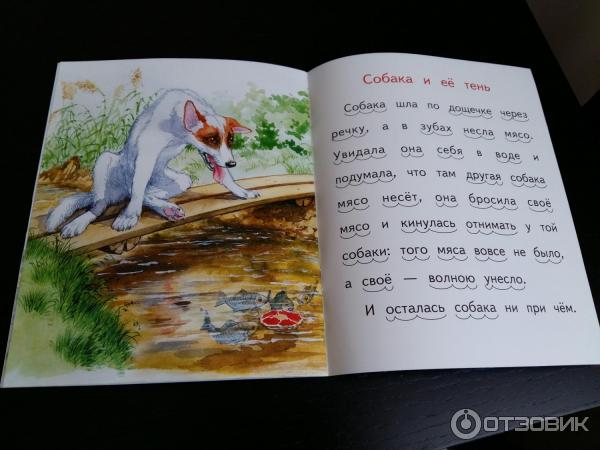 Собака и её тень
Собака шла по дощечке через
речку, а в зубах несла мясо.
Увидала она себя в воде и
подумала, что там другая собака
мясо несёт, она бросила своё
мясо и кинулась отнимать у той
собаки: того мяса вовсе не было,
а своё — волною унесло.
И осталась собака ни при чём.
ОТЗОВИК